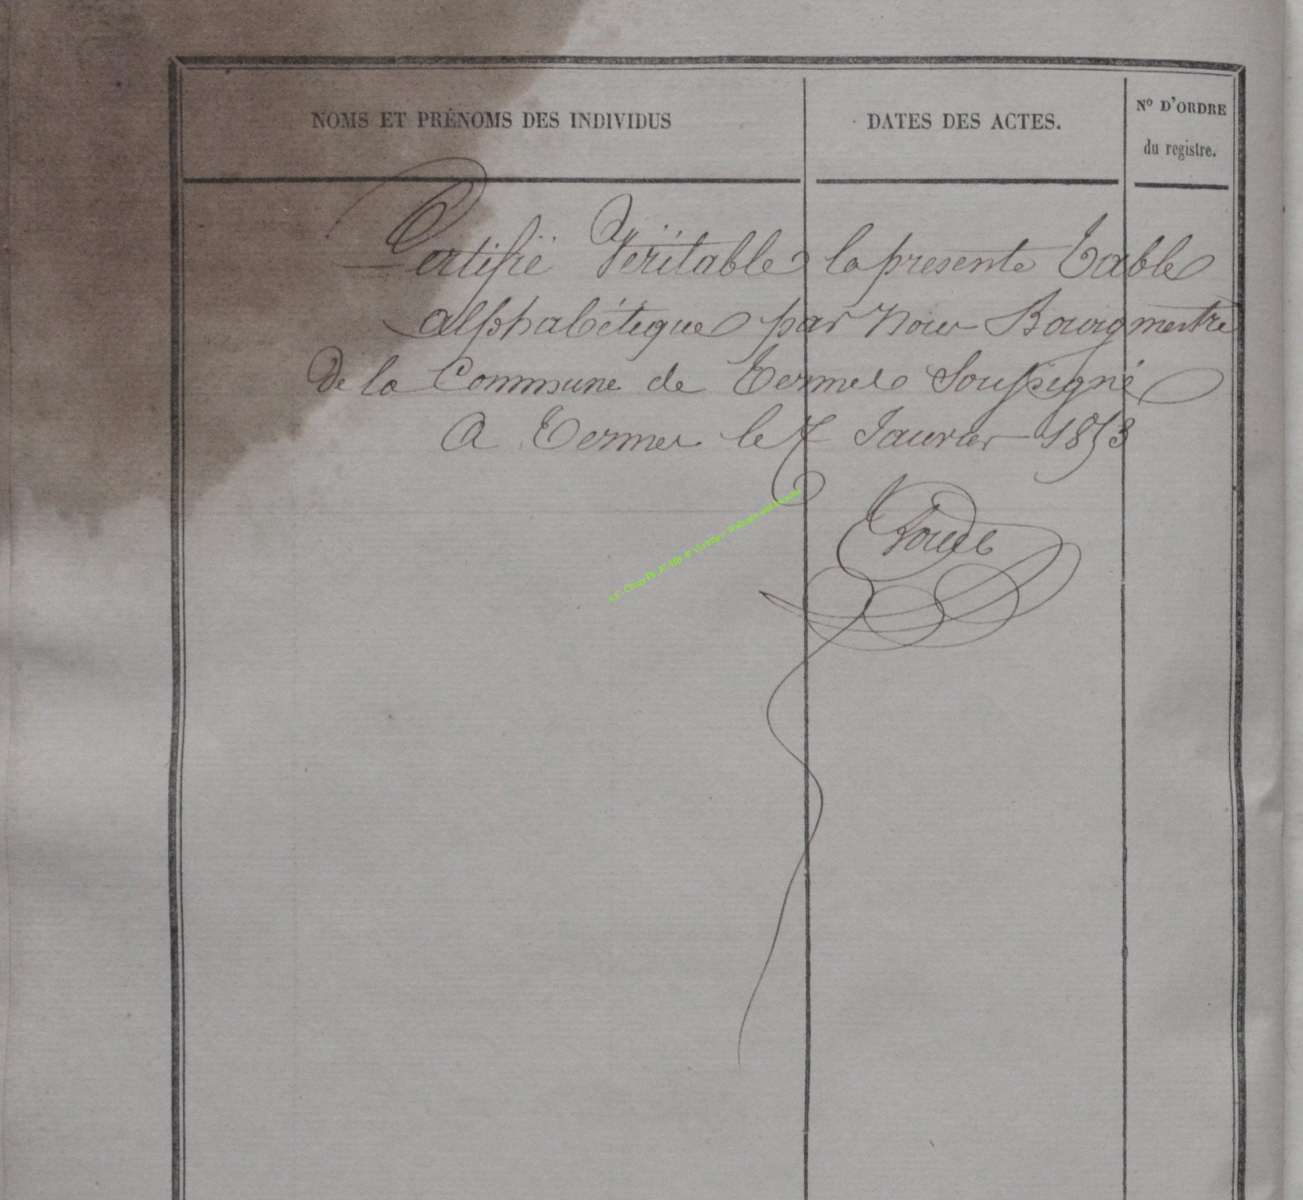 NOMS ET PRÉNOMS DES INDIVIDUS
DATES DES ACTES.
N° D'ORDRE
du registre.
Certifié Véritable la presente Table
alphabétique par nous Bourgmestre
De la Commune de Termes Soussigné
A Termes le 7 Janvier 1853